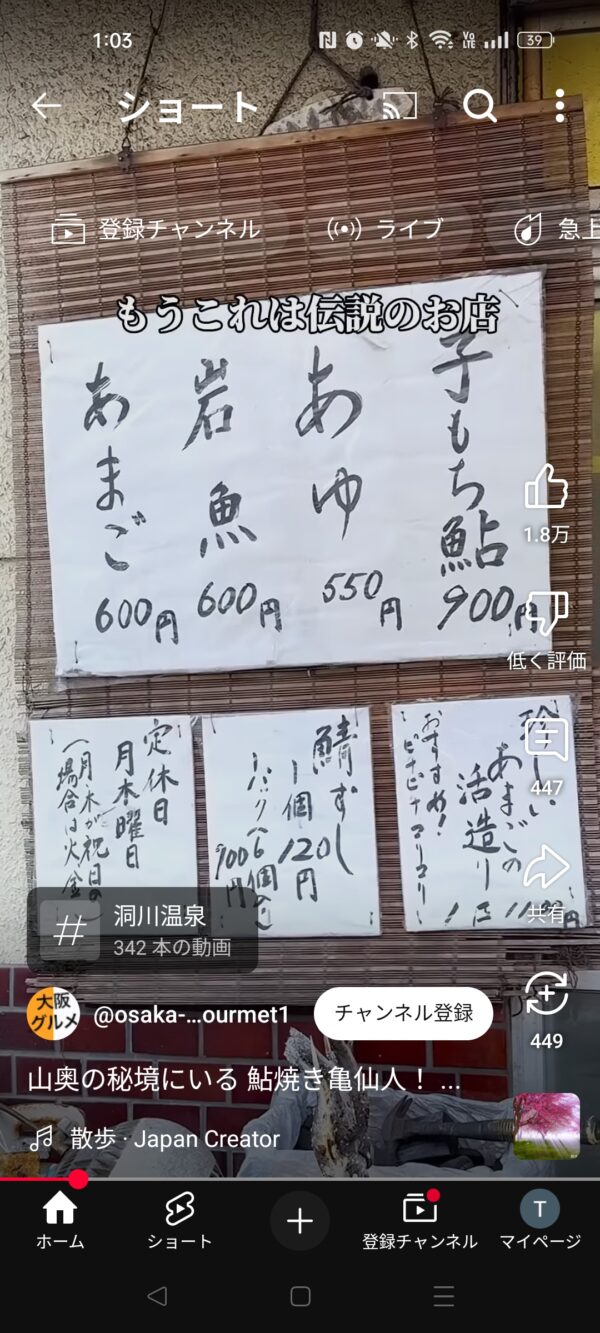 1:03
39
ショート
登録チャンネル
ライブ
急上
もうこれは伝説のお店
子もち鮎
900円
あゆ
550円
岩魚
600円
あまご
600円
珍しい
あまごの
活造り
おすすめ!
ピチピチコリコリ
鯖ずし
1個120円
1パック(6個入)
700円
定休日
月木曜日
(月木が祝日の
場合は火金)
1.8万
低く評価
447
共有
449
#
洞川温泉
342 本の動画
大阪
グルメ
@osaka-...ourmet1
チャンネル登録
山奥の秘境にいる 鮎焼き亀仙人! ...
散歩 · Japan Creator
ホーム
ショート
登録チャンネル
T
マイページ